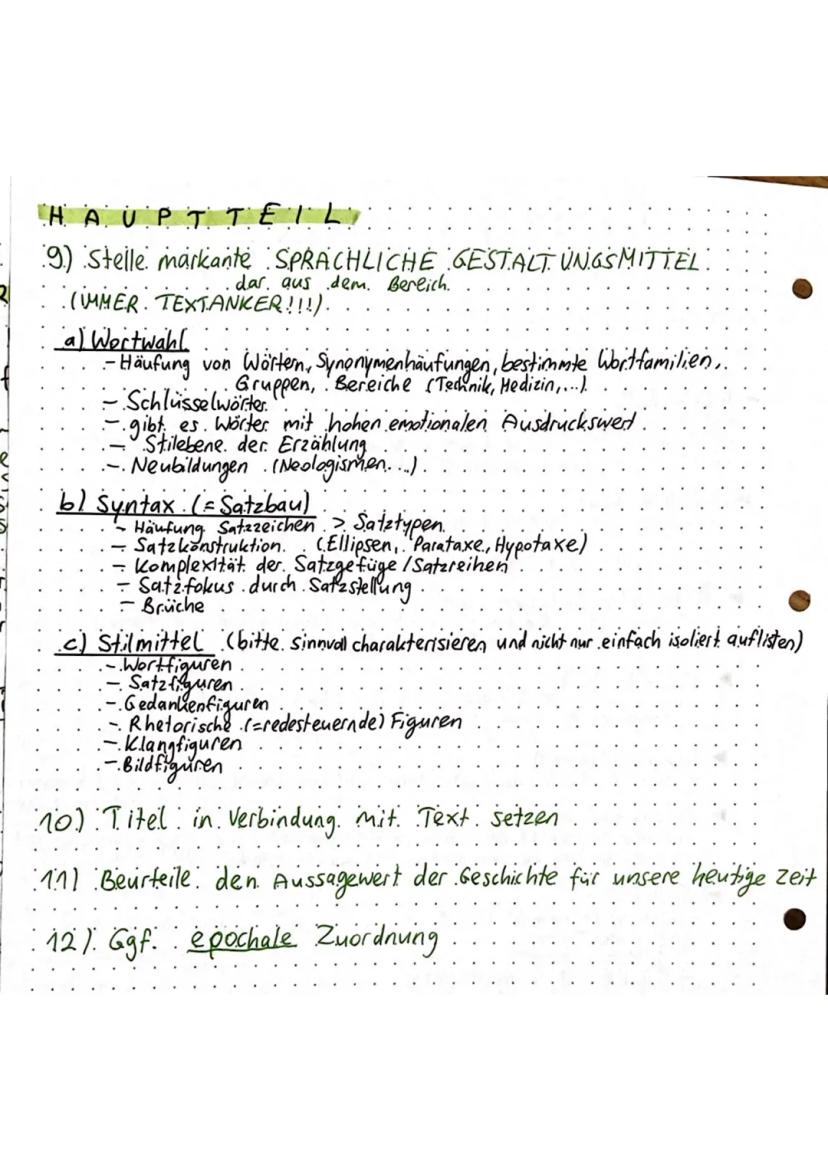 HAUPTTEIL
9.) Stelle markante SPRACHLICHE GESTALTUNGSMITTEL
dar aus dem Bereich
(IMMER TEXTANKER!!!)
a) Wortwahl
- Häufung von Wörtern, Synonymenhäufungen, bestimmte Wortfamilien,
Gruppen, Bereiche (Technik, Medizin,...)
- Schlüsselwörter
- gibt es Wörter mit hohen emotionalen Ausdruckswert
- Stilebene der Erzählung
- Neubildungen (Neologismen...)
b) Syntax (= Satzbau)
- Häufung Satzzeichen > Satztypen
- Satzkonstruktion (Ellipsen, Parataxe, Hypotaxe)
- Komplexität der Satzgefüge / Satzreihen
- Satzfokus durch Satzstellung
- Brüche
c) Stilmittel (bitte sinnvoll charakterisieren und nicht nur einfach isoliert auflisten)
- Wortfiguren
- Satzfiguren
- Gedankenfiguren
- Rhetorische (=redesteuernde) Figuren
- Klangfiguren
- Bildfiguren
10.) Titel in Verbindung mit Text setzen
11) Beurteile den Aussagewert der Geschichte für unsere heutige Zeit
12). Ggf. epochale Zuordnung